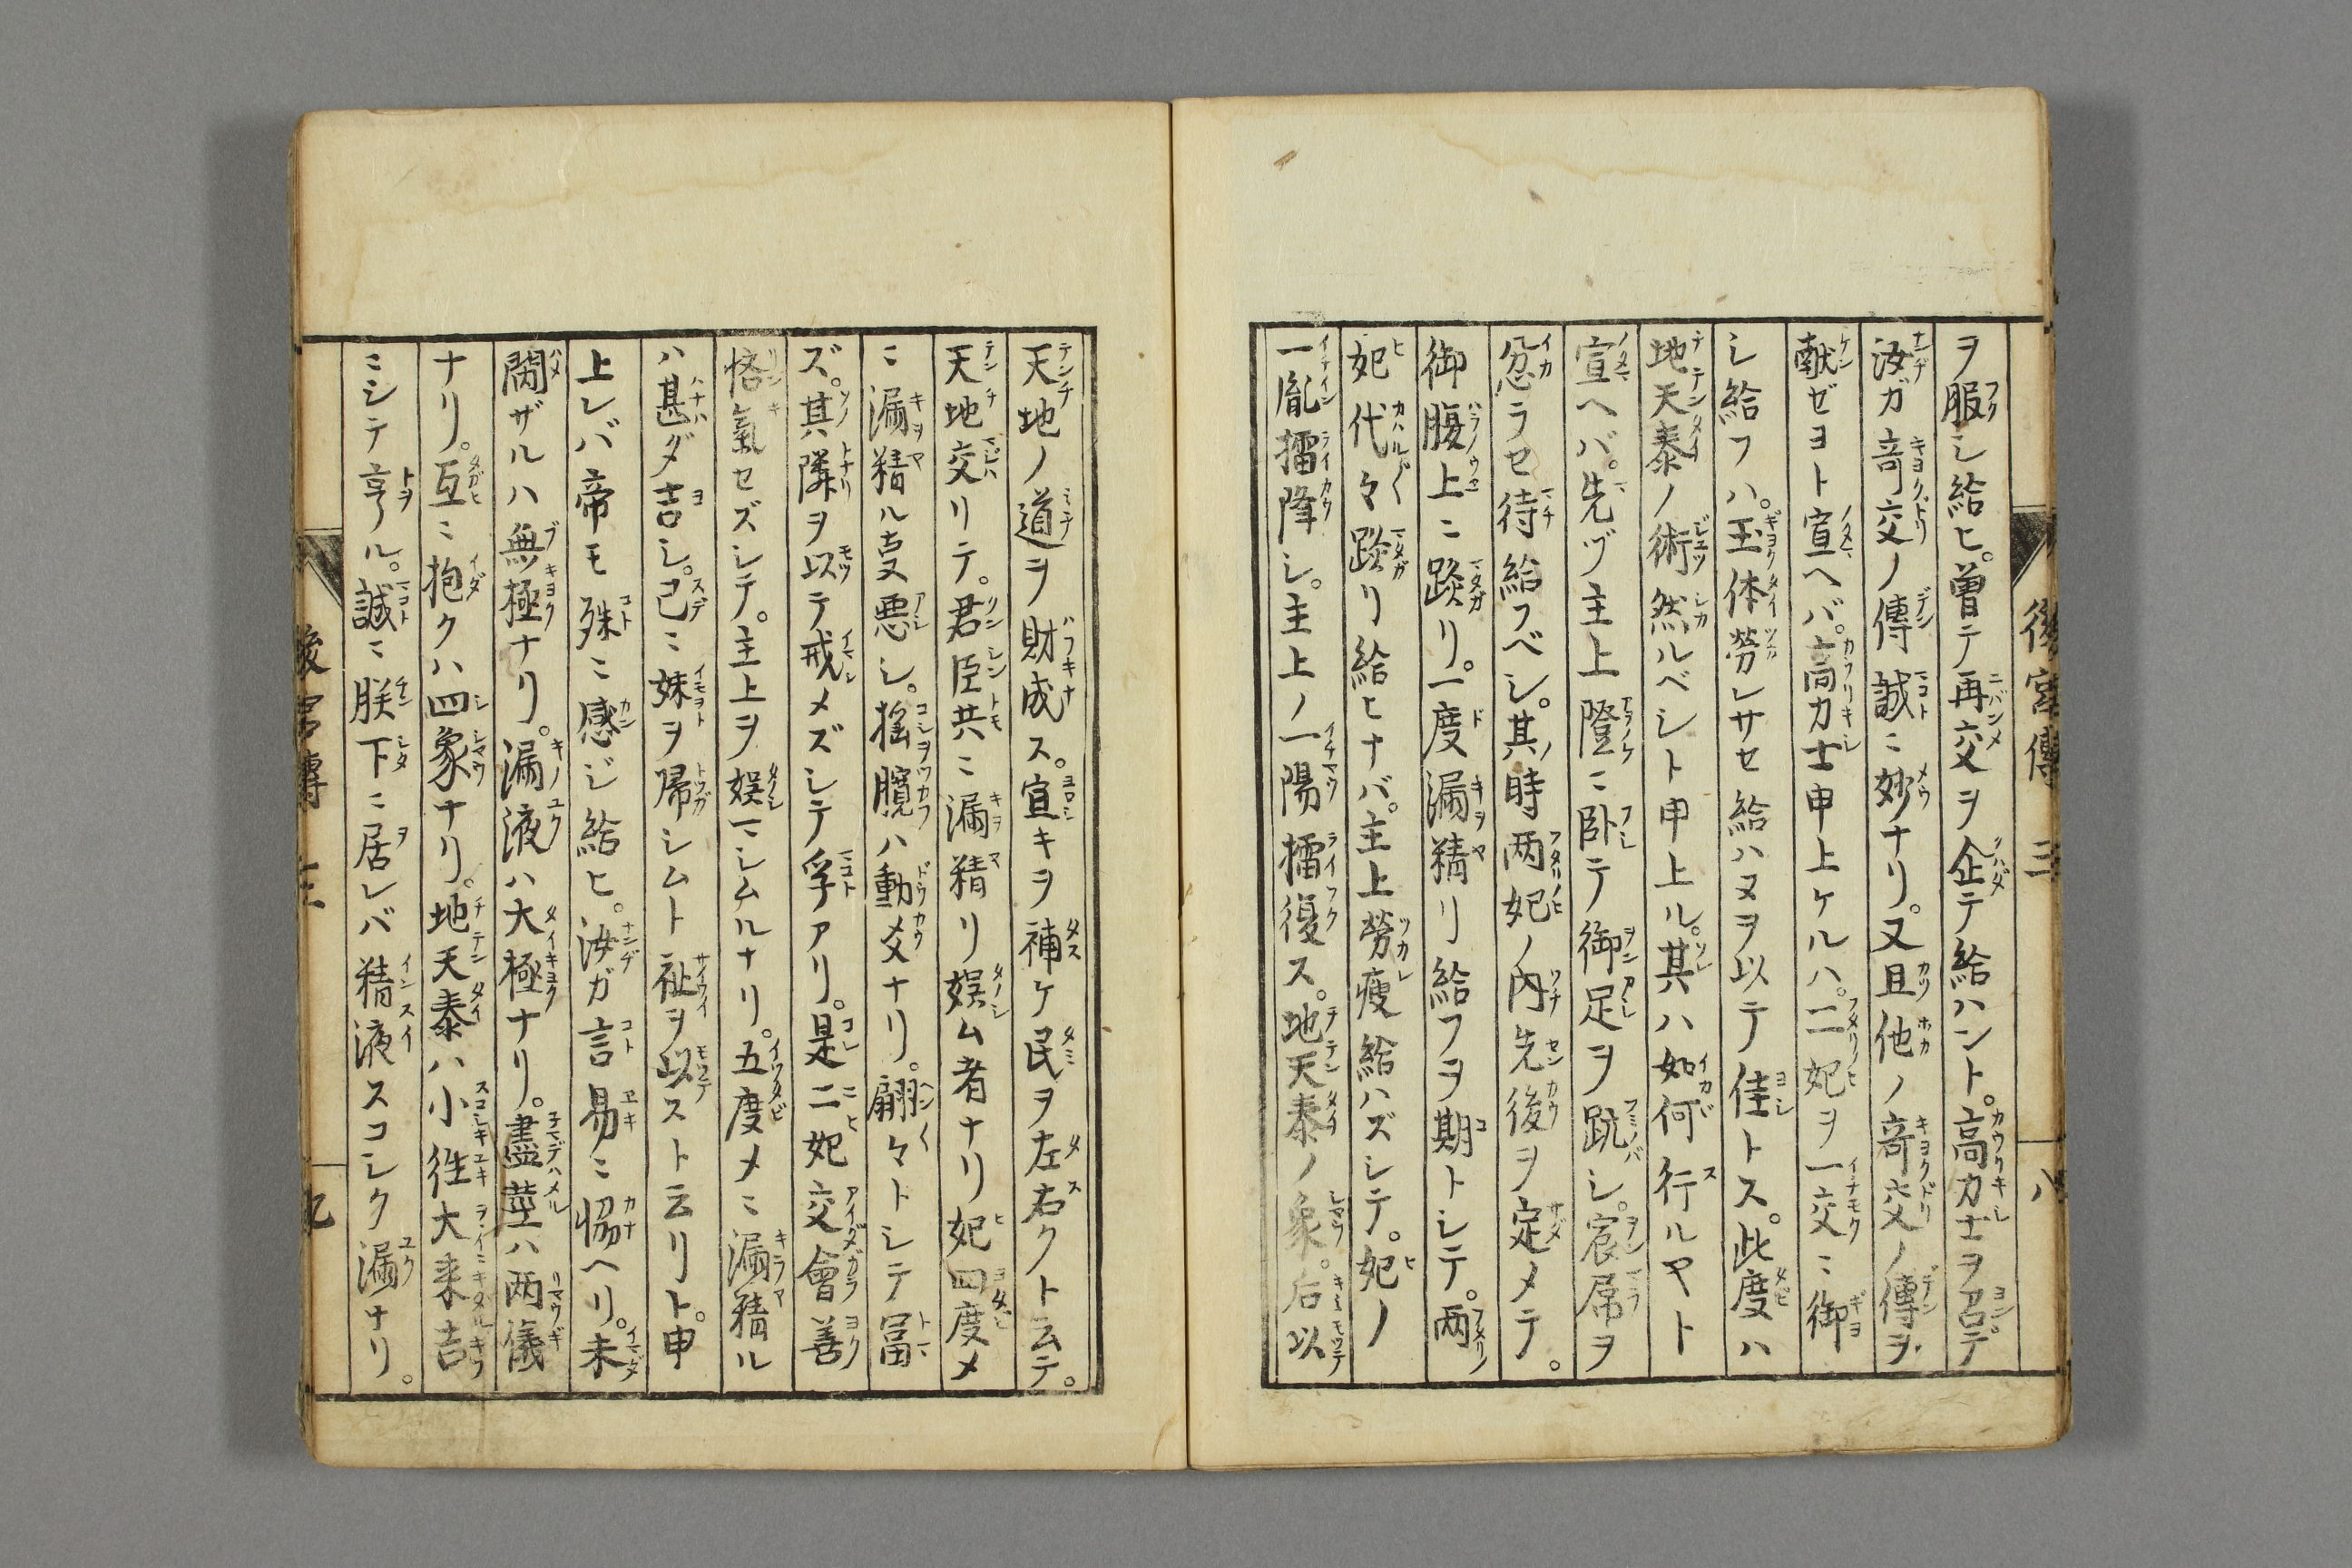 後宮傳 三 八
ヲ服シ給ヒ。曽テ再交ヲ企テ給ハント。高力士ヲ召デ
汝ガ竒交ノ傳誠ニ妙ナリ。又且他ノ竒交ノ傳ヲ
献ゼヨト宣ヘバ。高力士申上ケルハ。二妃ヲ一交ニ御
シ給フハ。玉体労レサセ給ハヌヲ以テ佳トス。此度ハ
地天泰ノ術然ルベシト申上ル。其ハ如何行ルヤト
宣ヘバ。先ヅ主上隥ニ卧テ御足ヲ䟘シ。宸㞕ヲ
忿ラセ待給フベシ。其時两妃ノ内先後ヲ定メテ。
御腹上ニ跨リ。一度漏精リ給フヲ期トシテ。两
妃代々跨リ給ヒナバ。主上労痩給ハズシテ。妃ノ
一胤擂降シ。主上ノ一陽擂復ス。地天泰ノ象。后以
天地ノ道ヲ財成ス。宣キヲ補ケ民ヲ左右クト云テ。
天地交リテ。君臣共ニ漏精リ娯ム者ナリ妃四度メ
ニ漏精ル叓悪シ。揺臗ハ動爻ナリ。翩々トシテ冨
ズ。其隣ヲ以テ戒メズシテ孚アリ。是二妃交會善
悋氣セズシテ。主上ヲ娯マシムルナリ。五度メニ漏精ル
ハ甚ダ吉シ。已ニ妹ヲ帰シムト祉ヲ以ストユリト。申
上レバ帝モ殊ニ感ジ給ヒ。汝ガ言易ニ恊ヘリ。未
閡ザルハ無極ナリ。漏液ハ大極ナリ。盡莖ハ两儀
ナリ。互ニ抱クハ四象ナリ。地天泰ハ小徃大来吉
ニシテ亨ル。誠ニ朕下ニ居レバ精液スコシク漏ナリ。
後宮傳 三 九